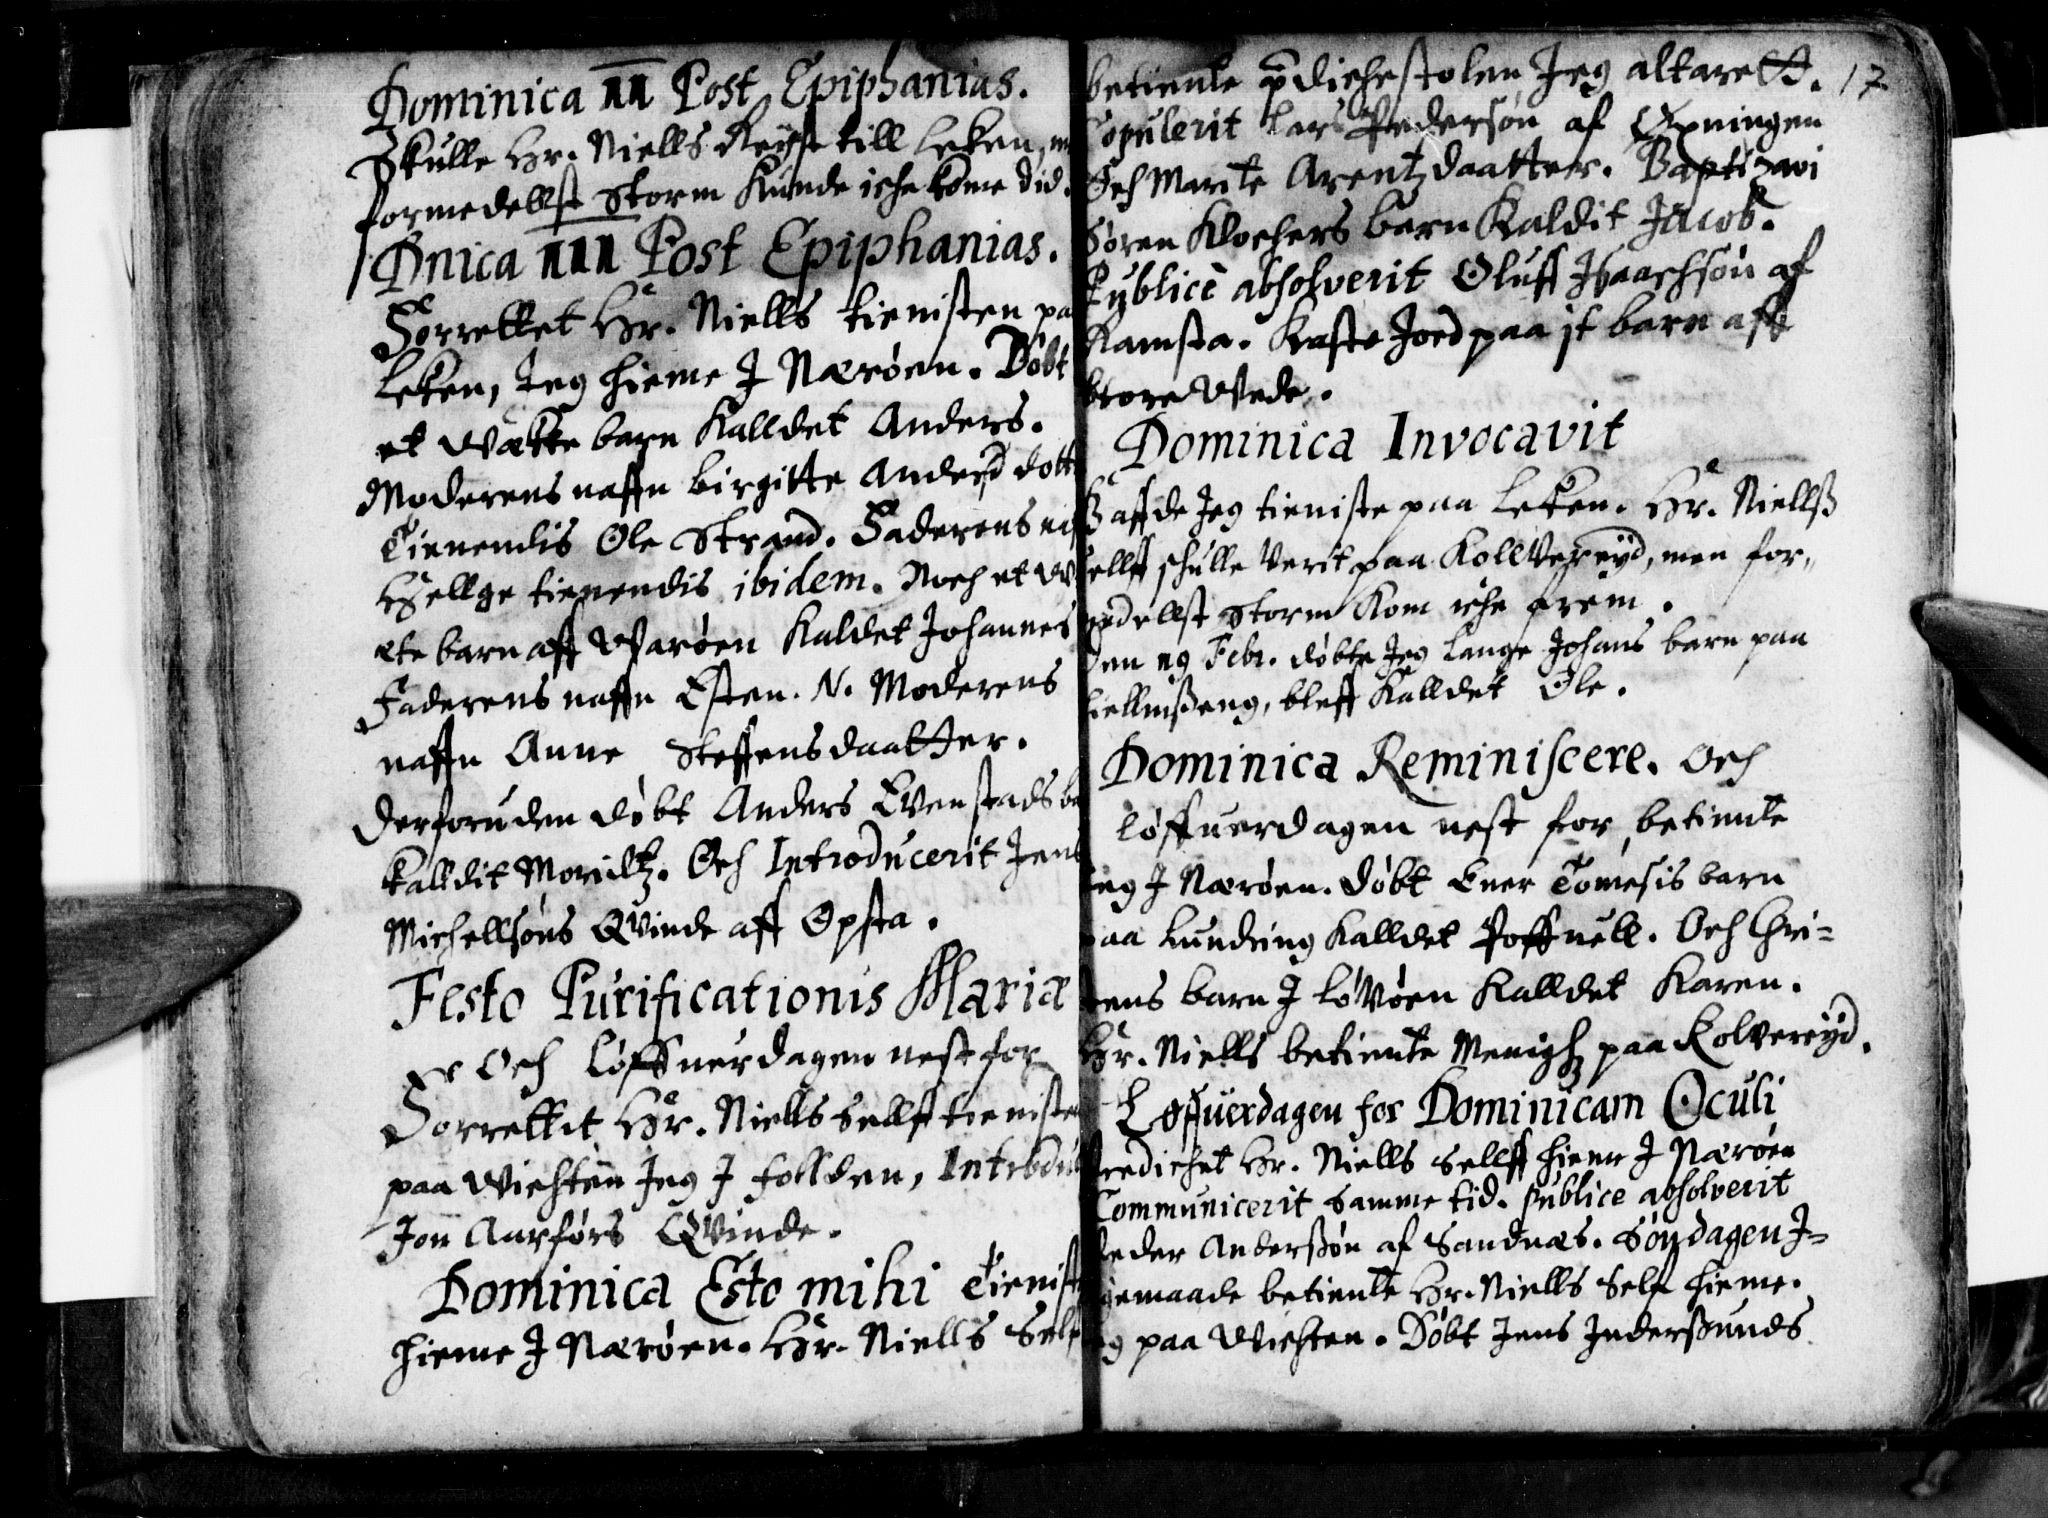 Dominica III Post Epiphanias.
Skulle Hr. Niells Reist till Leken, m
formedellst Storm Kunde iche kome did.
Dnica IIII Post Epiphanias.
Forrettet Hr. Niells tienisten pa
Leken, Jeg hieme J Nærøen. Døbt
et Vætte barn Kalldet Anders.
Moderens naffn Birgitte Anders dott
Tienendis Ole Strand. Faderens na
Hellge tienendis ibidem. Noch et V
ete barn aff Varøen Kaldet Johannes
Faderens naffn Esten. N. Moderens
naffn Anne Steffensdaatter.
Derforuden døbt Anders Evenstads ba
kalldit Moritz. Och Introducerit Jens
Michellsøns Qvinde aff Opsta.
Festo Purificationis Mariæ
Och Løffuerdagen nest for
Forrettit Hr. Niells Sellff tieniste
paa Vichten Jeg J Follden, Introdu
Jon Aarførs Qvinde.
Dominica Esto mihi Tienist
hieme J Nærøen. Hr. Niells Self
betiente predichestolen, Jeg altarett. 17
Copulerit Lars Pedersøn af Opningen
Och Marite Arentzdaatter. Baptizavi
Søren Klochers barn Kaldit Jacob.
Publicè absolverit Oluff Isaachsøn af
Ramsta. Kaste Jord paa it barn aff
Dominica Invocavit
Haffde Jeg tieniste paa Leken. Hr. Niellss
sellff schulle Verit paa Kollvereyd, men for,,
medellst Storm Kom iche frem.
Den 19 Febr. døbte Jeg Lange Johans barn paa
bleff Kalldet Ole.
Dominica Reminiscere. Och
Løffuerdagen nest for, betiente
Jeg J Nærøen. Døbt Ener Tomesis barn
paa Lundring Kalldet Poffuell. Och Chri=
stens barn J Løvøen Kalldet Karen.
Hr. Niells betiente Menigh. paa Kolvereyd.
Løffuerdagen for Dominicam Oculi
Predichet Hr. Niells Sellff hieme J Nærøen
Communicerit Samme tid. Publice absolverit
Peder Anderssøn af Sandnæs. Søndagen J=
ligemaade betiente Hr. Niells Self hieme.
Jeg paa Vichten. Døbt Jens Inderssunds